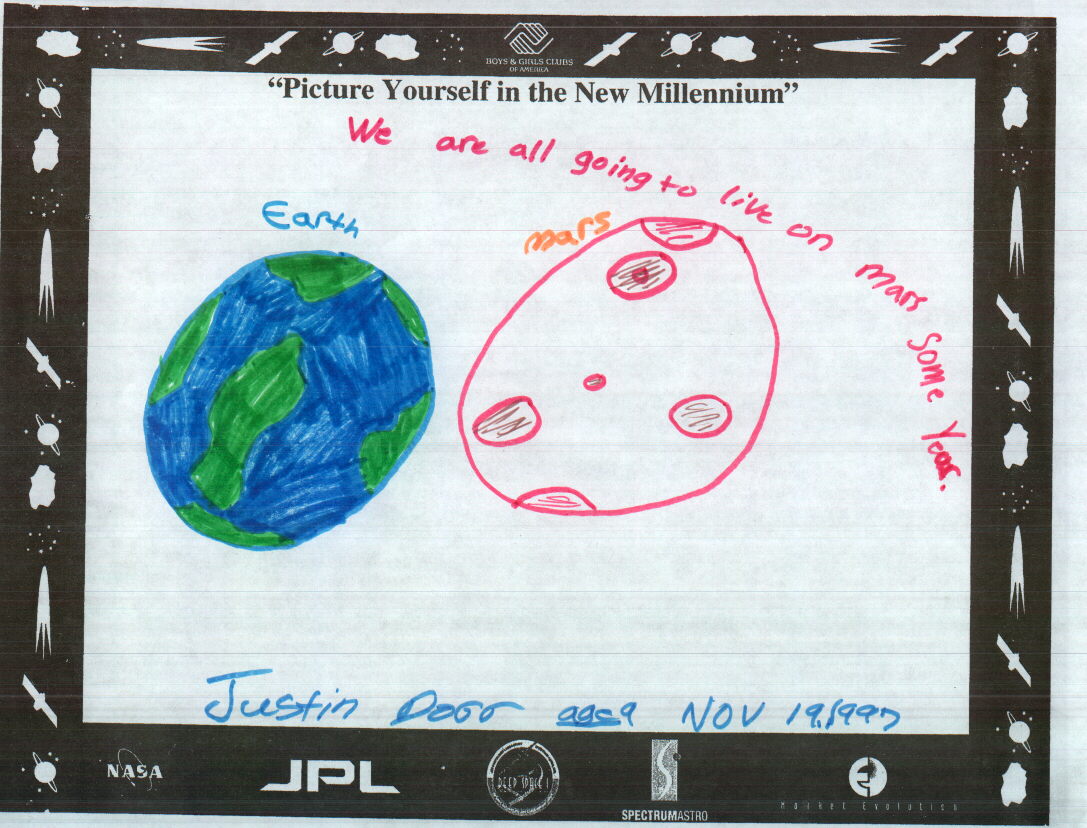 BOYS & GIRLS CLUBS
OF AMERICA
“Picture Yourself in the New Millennium”
We are all going to live on mars some Year.
Earth
mars
Justin Dorr age9 NOV 19,1997
NASA
JPL
DEEP SPACE 1
SPECTRUMASTRO
Market Evolution